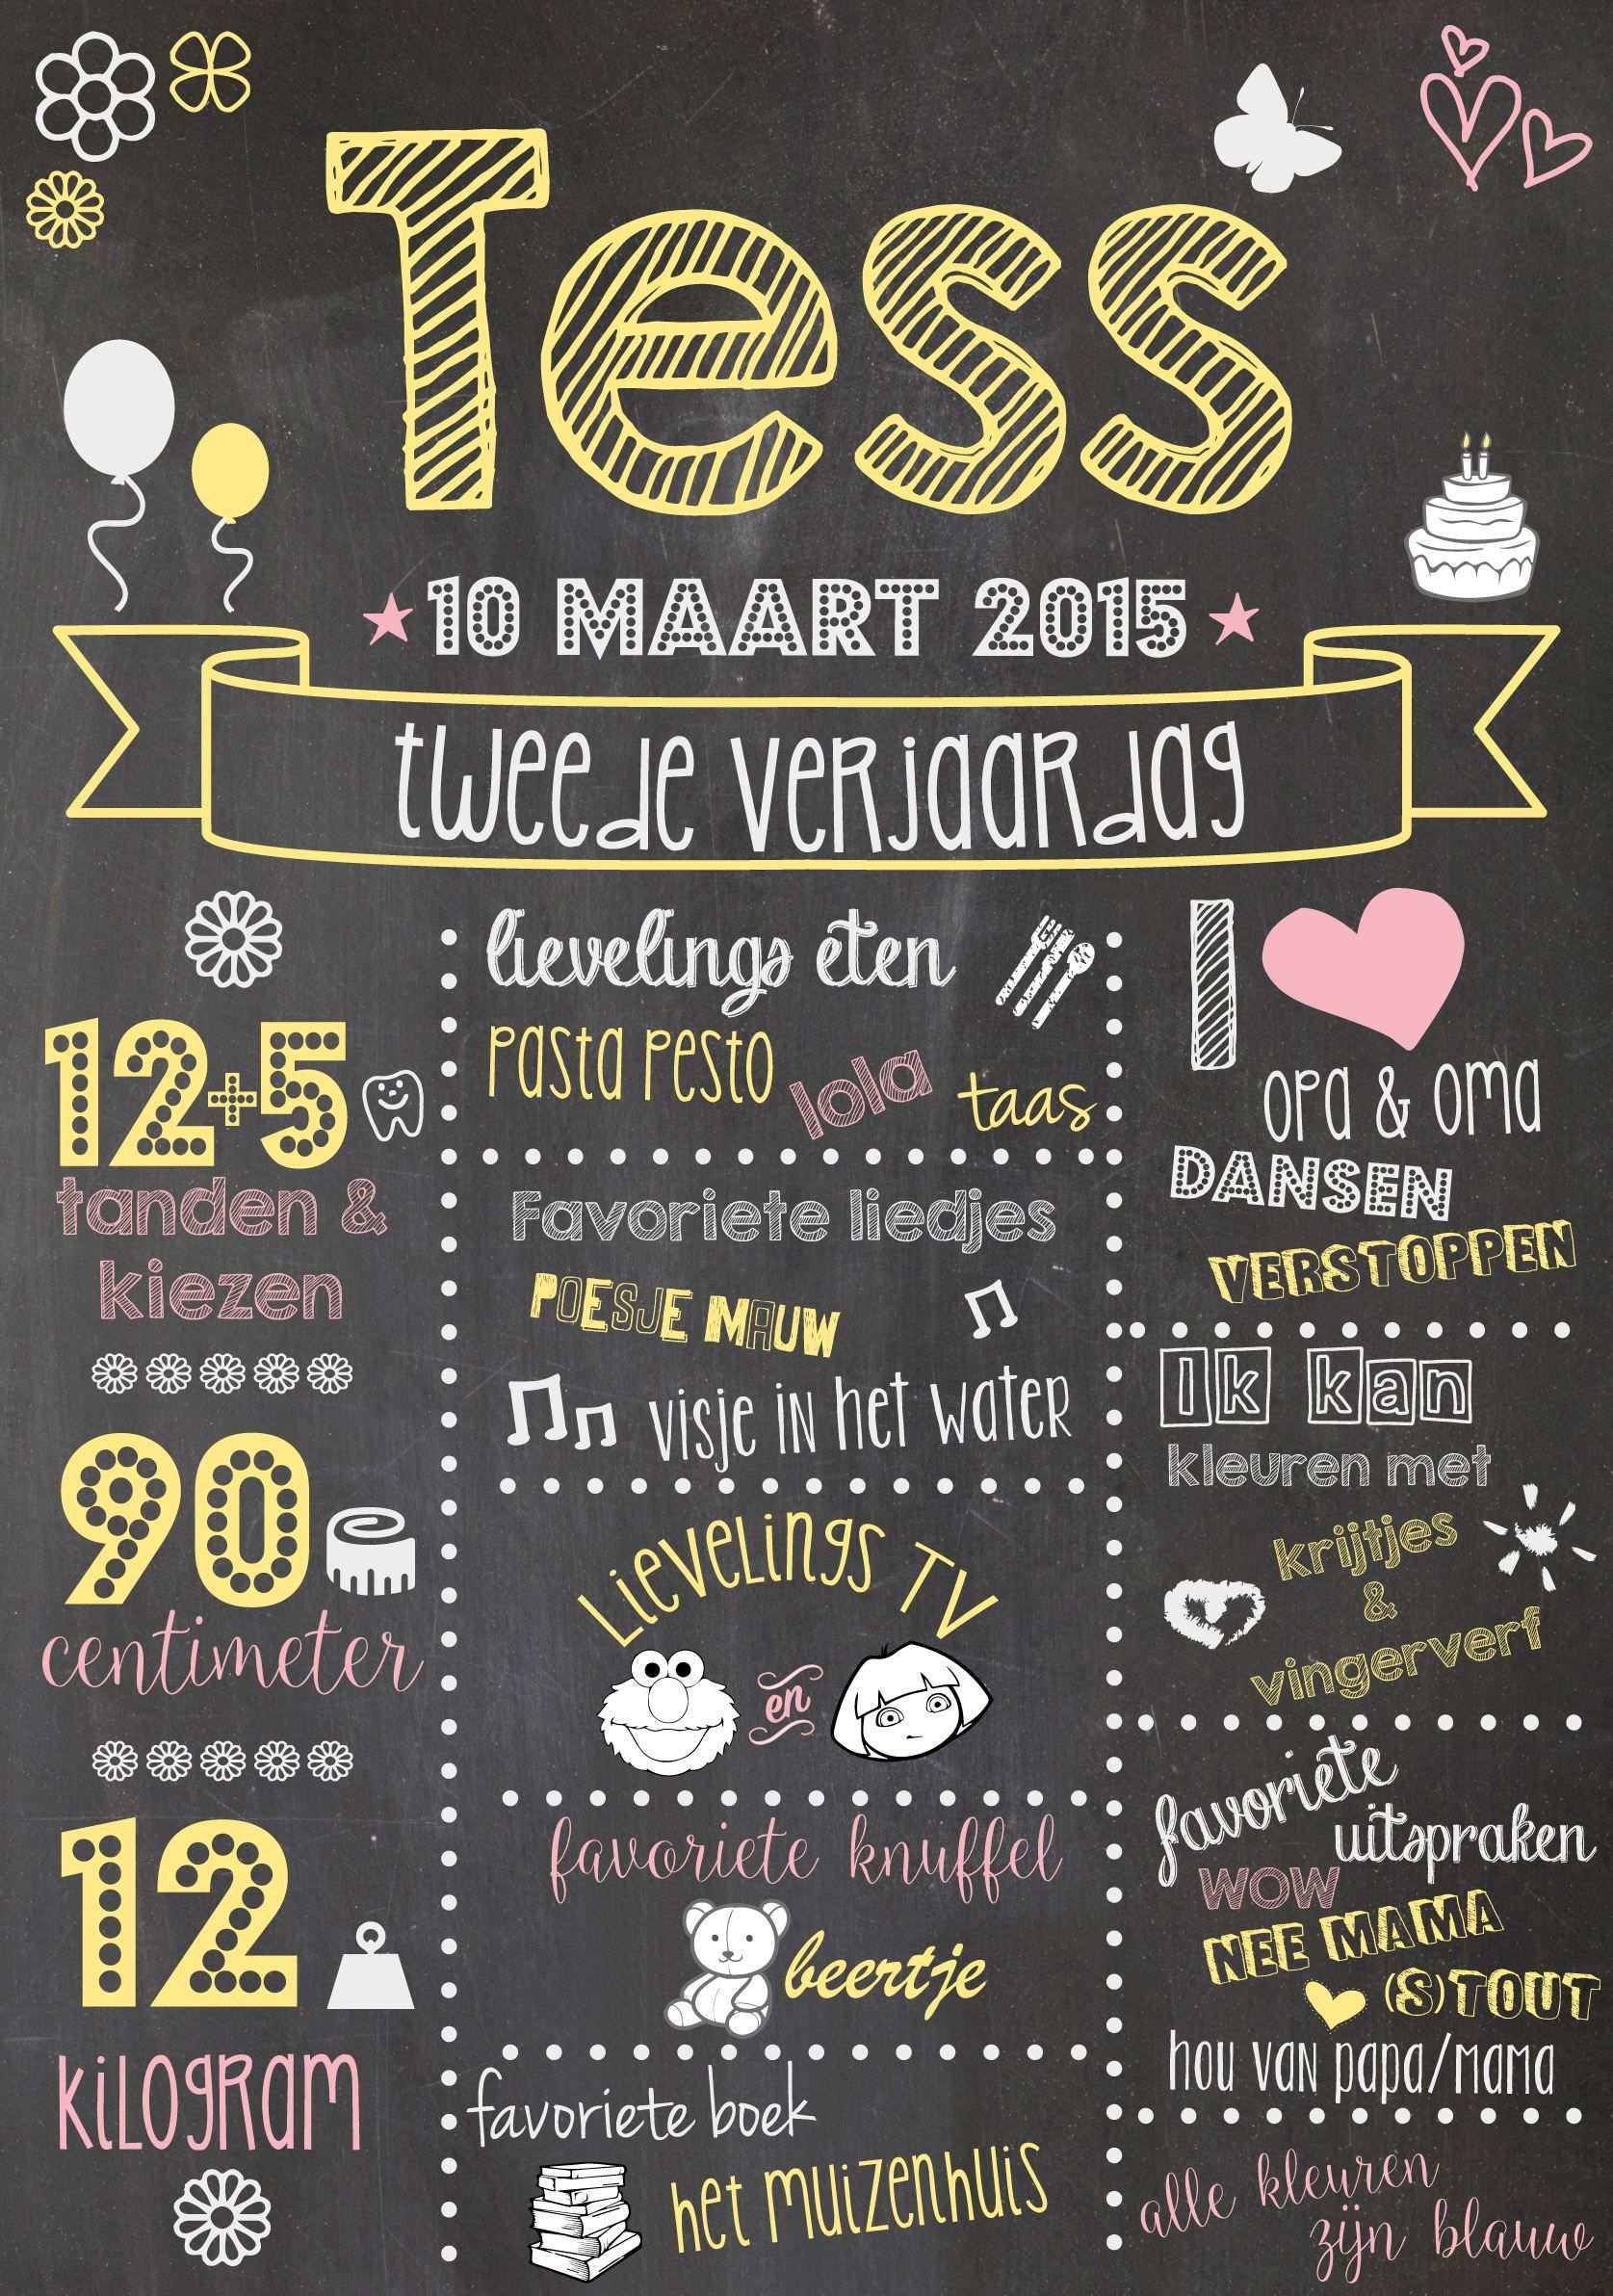 Tess
10 MAART 2015
tweede verjaardag
12+5
tanden &
kiezen
90
centimeter
12
kilogram
lievelings eten
pasta pesto
lola
taas
Favoriete liedjes
POESJE MAUW
visje in het water
Lievelings TV
en
favoriete knuffel
beertje
favoriete boek
het muizenhuis
I
opa & oma
DANSEN
VERSTOPPEN
Ik kan
kleuren met
krijtjes
&
vingerverf
favoriete
uitspraken
WOW
NEE MAMA
(S)TOUT
hou van papa/mama
alle kleuren
zijn blauw